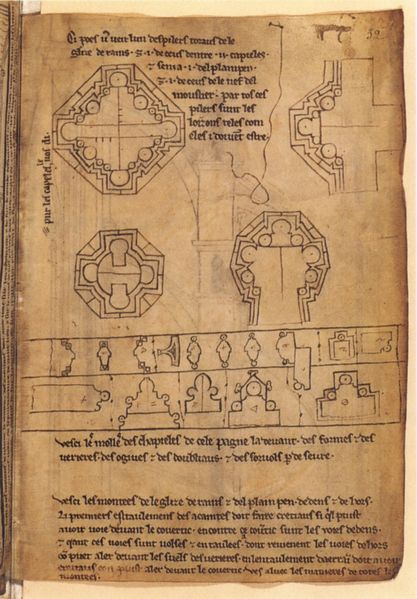 Ci poes vos veir lun des pilers toraus de le
glize de rains · & · i · de ceus dentre · ii · capieles
& sen i a · i · del plain pen ·
& · i · de ceus de le nef del
moustier · par tos ces
pilers sunt les
loizons teles com
eles i doivent estre ·
por les capeles
vesci les molles des chapieles de cele pagne la devant · des formes & des
verieres · des ogives & des doubliaus · & des sorvols p deseure ·
vesci les montees de le glize de rains & del plain pen · dedens & de hors ·
Li premiers estaulemens des acaintes doit faire crestiaus si quil puist
avoir voie devant le covertic · encontre ce covertic sunt les voies dedens ·
& qant ces voies sunt volses & entaulees · dont revienent les voies dehors
com puet aler devant les suels des verieres · en lentaulement daerrain doit avoir
crestiaus com puist aler devant le covertic · ves aluec les manieres de totes les
montees ·